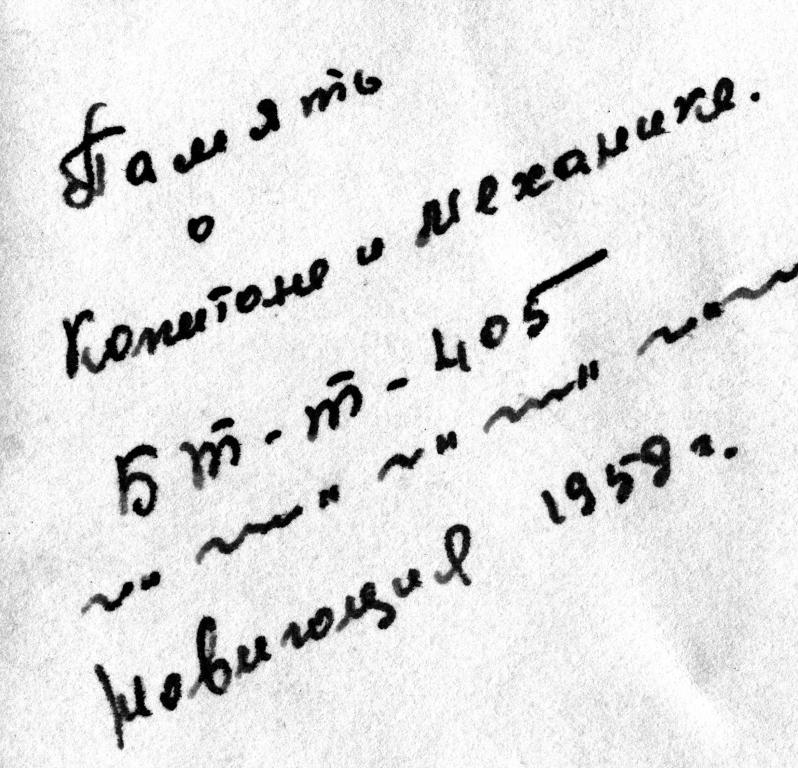 Память
о
Копитоне и механике.
БТ-Т-405
~"~~"~"~~"~"~
Мовигоция 1959 г.